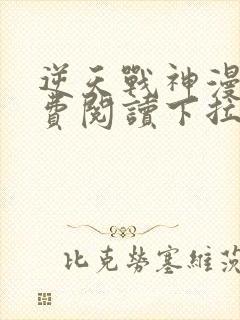 逆天戰神漫
費閱讀下拉
比克勞塞維茨